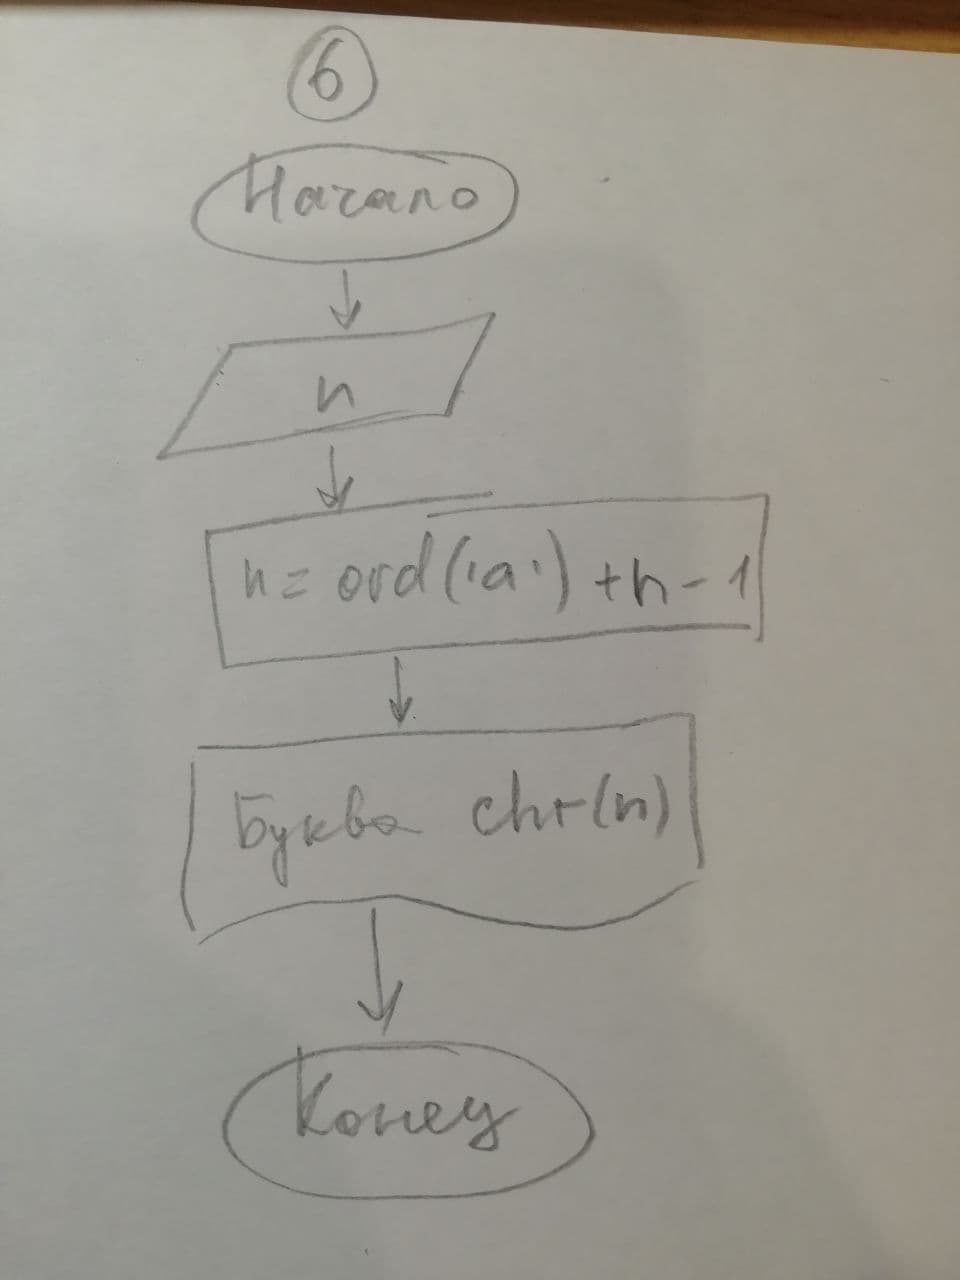 6
Начало
n
n = ord('a') + n - 1
Буква chr(n)
Конец